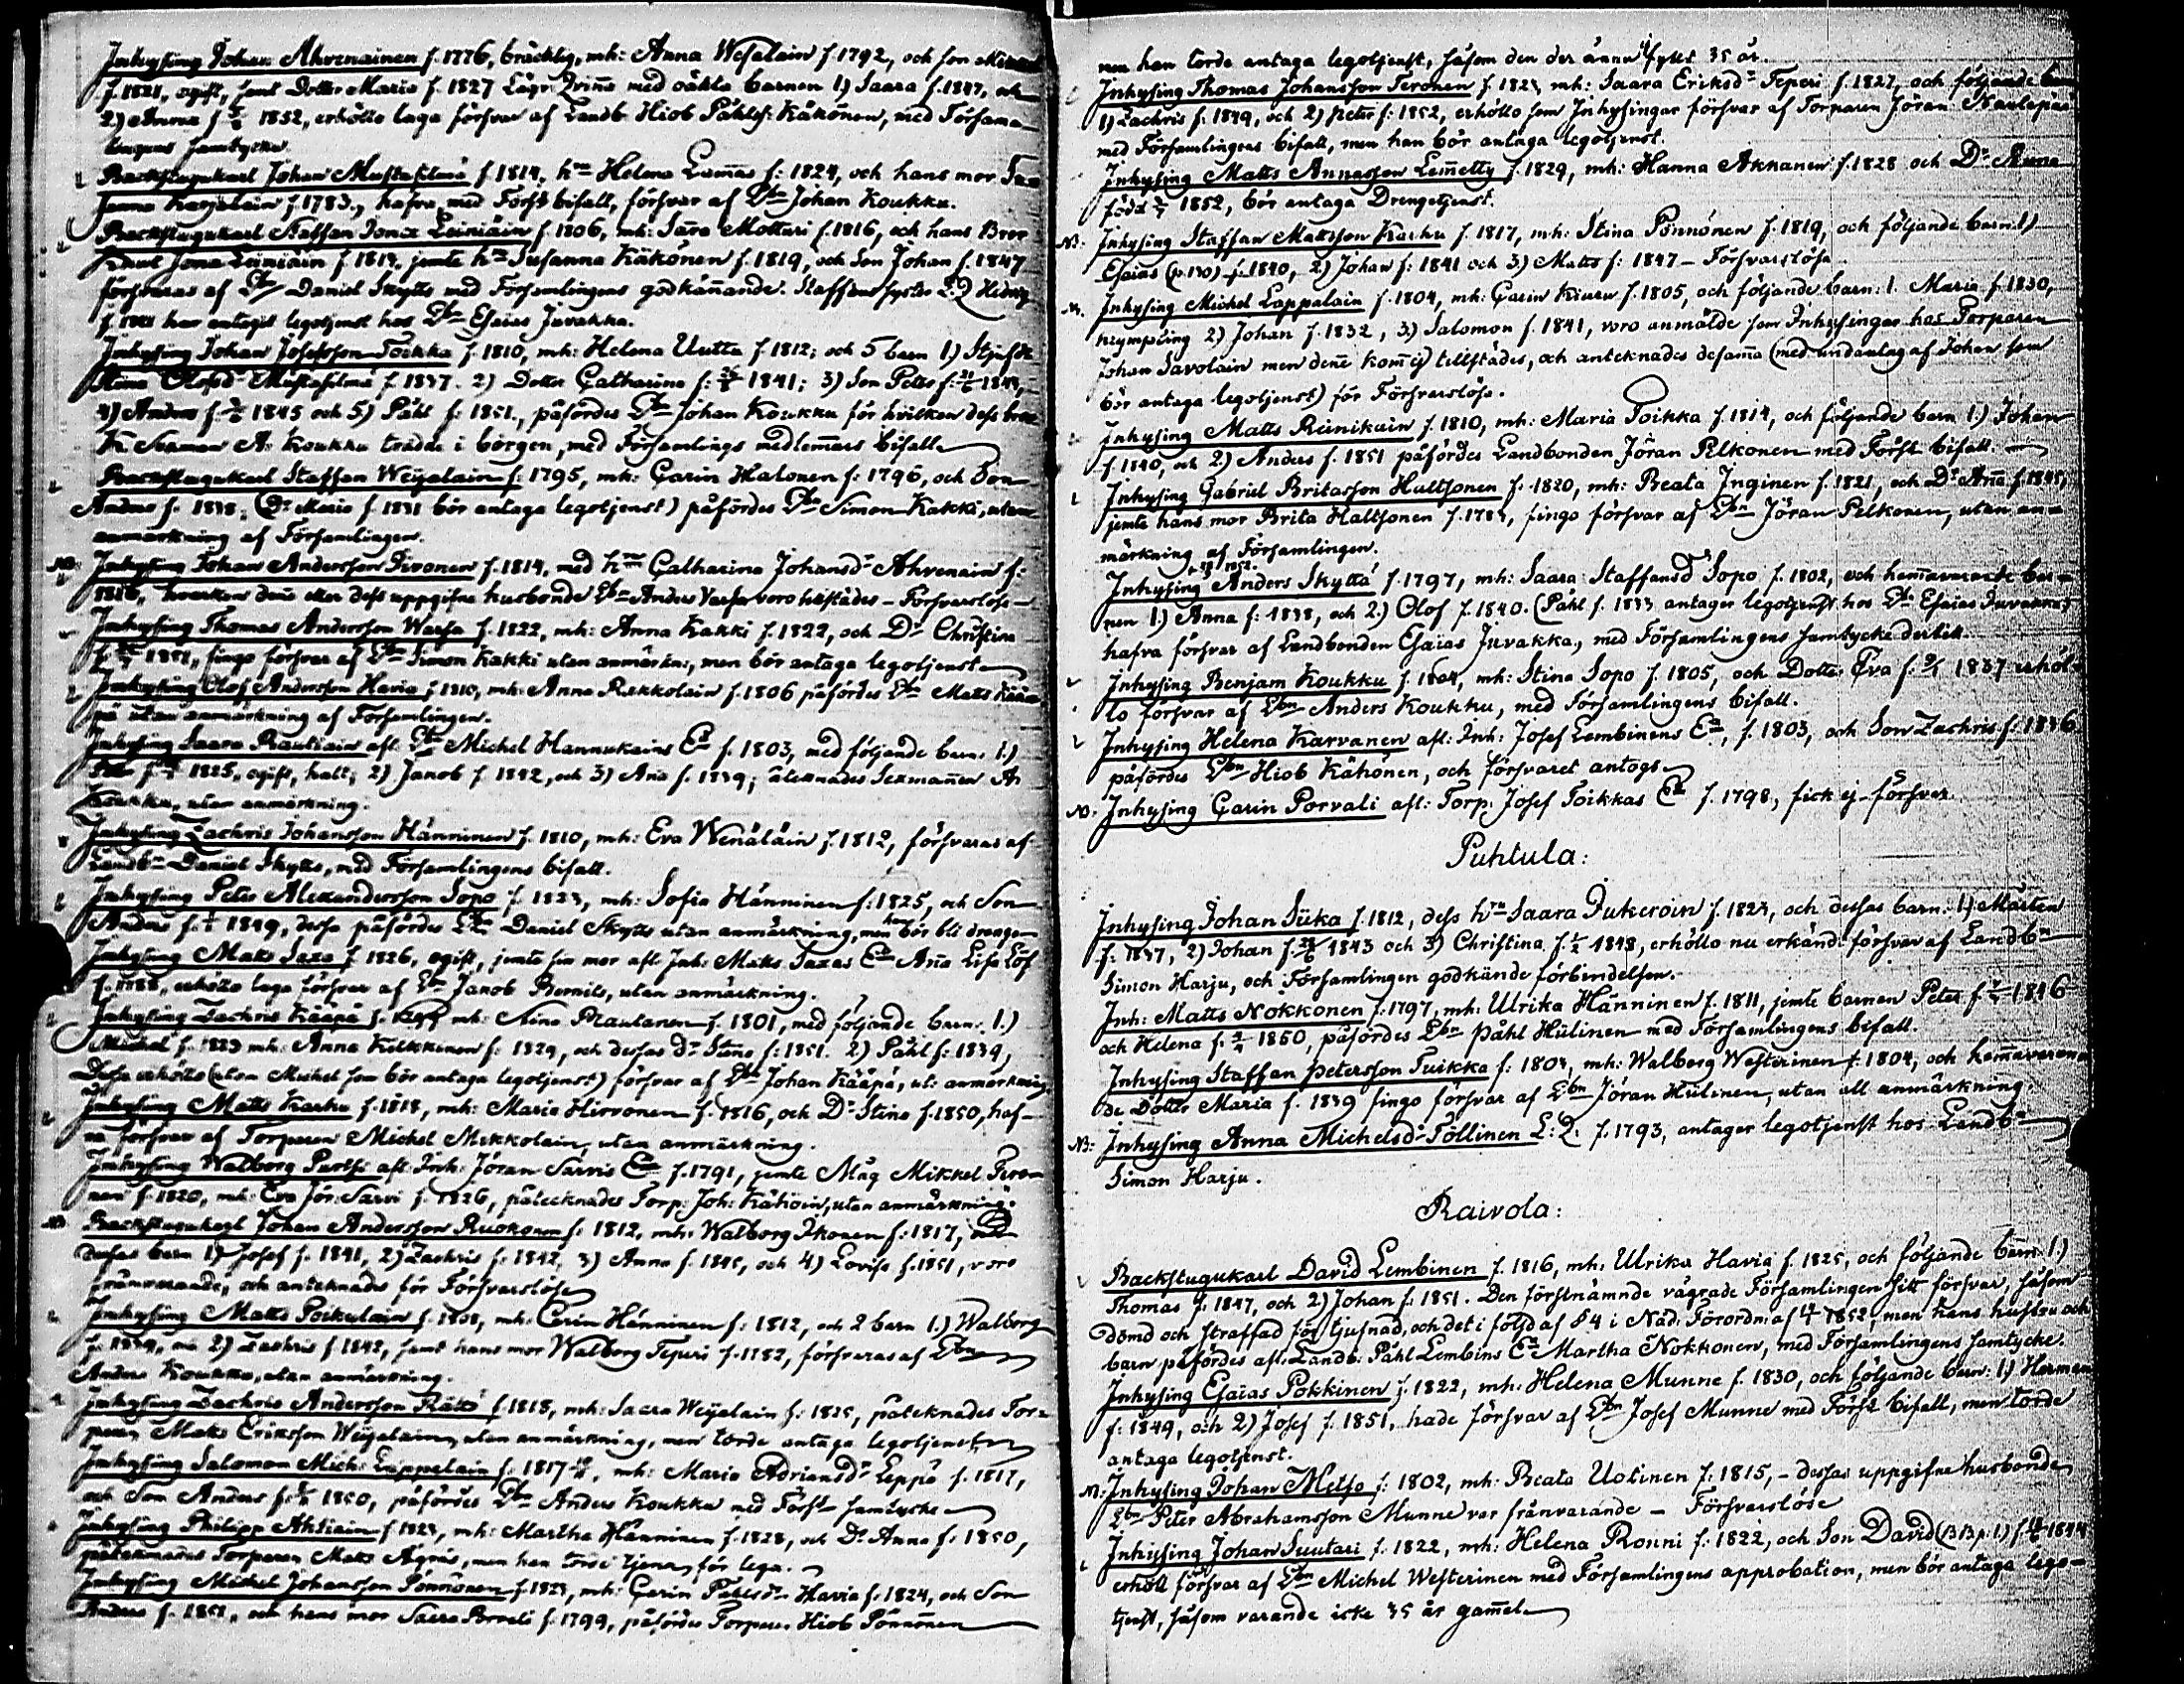 Inhysing Johan Ahvenainen f. 1776, bräcklig, mh: Anna Wesalain f 1792, och son
f. 1821, ogift, samt Dotter Maria f. 1827 Lägr: Qvinna med oäkta barnen 1) Saara f. 1847, och
2) Anna f 1852, erhöllo laga försvar af Landb. Hiob Påhls: Käkönen, med Församl-
lingens samtycke
Backstugukarl Johan Mustafilmä f 1814, hru Helena Lamas f: 1824, och hans mor Su-
sanna Karjalain f 1783., hafva med Förs: bifall, försvar af Lbn Johan Koukku.
Backstugukarl Staffan Jonæ Leiniäin f 1806, mh: Sara Mottari f. 1816, och hans Bror
Jona Leiniäin f. 1814, jemte hru Susanna Käkönen f. 1819, och Son Johan f. 1847
försvaras af Lbn Daniel Skytts med Församlingens godkännande. Staffans syster
f. har antagit legotjenst hos Lbn Esaias Juvakka.
Inhysing Johan Josefsson Toikka f. 1810, mh: Helena Uutta f. 1812; och 5 barn 1) Stjufdr
Stina Olofsdr Mustafilmä f 1837. 2) Dotter Catharina f: 1841; 3) Son Peter f: 1843,
4) Anders f 1845 och 5) Påhl f: 1851., påfördes Lbn Johan Koukku för hvilken dess bror
K. Sexman A: Koukku trädde i borgen, med Församlings medlemmars bifall
Backstugukarl Staffan Weijalain f: 1795, mh: Carin Halonen f: 1796, och Son
Anders f. 1838; (Dr Maria f. 1831 bör antaga legotjenst) påfördes Lbn Simon Kakki, utan
anmärkning af Församlingen.
NB: Inhysing Johan Andersson Pivonen f. 1814, med hru Catharina Johansdr Ahvenain f:
1816, hvarken denne eller dess uppgifne husbonde Lbn Anders Varsa voro tillstädes - Försvarslöse
Inhysing Thomas Andersson Warsa f. 1822, mh: Anna Kakki f. 1822, och Dr Christina
f. 1851, fingo försvar af Lbn Simon Kakki utan anmärkn:, men bör antaga legotjenst
Inhysing Olof Andersson Havia f. 1810, mh: Anna Rekkolain f. 1806 påfördes Lbn Matts Kää-
pä utan anmärkning af Församlingen.
Inhysing Saara Rautiain afl. Lbn Michel Hannukains Ea f. 1803, med följande barn: 1.)
f 1825, ogift, halt; 2) Janob f. 1832, och 3) Ana f. 1839; åtecknades Sexmannen An
Koukku, utan anmärkning.
Inhysing Zachris Johansson Hänninen f. 1810, mh: Eva Wenäläin f. 1812, försvaras af
Landbn Daniel Skytts, med Församlingens bifall.
Inhysing Peter Alexandersson Sopo f. 1823, mh: Sofia Hänninen f: 1825, och Son
Anders f. 1849, dessa påfördes Lbn Daniel Skytts utan anmärkning, men han bör bli dräng
Inhysing Matts Saxa f 1826, ogift, jemte sin mor afl. Inh: Matts Saxas Ea Anna Lisa Löf
f. 1788, erhöllo laga försvar af Lbn Janob Bernils, utan anmärkning.
Inhysing Zachris Kääpä f. mh: Stina Rautanen f. 1801, med följande barn. 1.)
Michel f. 1823 mh: Anna Kekkonen f: 1829, och dessas dr Stina f: 1851. 2) Påhl f: 1839,
Dessa erhöllo (utom Michel som bör antaga legotjenst) försvar af Lbn Johan Kääpä, ut: anmärkning
Inhysing Matts Karhu f. 1818, mh: Maria Hirvonen f. 1816, och Dr Stina f. 1850, haf-
va försvar af Torparen Michel Mikkolain, utan anmärkning.
Inhysing Walborg Partsi afl. Inh: Jöran Sarvis Ea f. 1791, jemte Måg Mikkel Tero-
nen f. 1820, mh: Eva Jör: Sarvi f. 1826, påtecknades Torp: Joh: Kähöin, utan anmärkning.
NB: Backstugukarl Johan Andersson Ruokonen f. 1812, mh: Walborg Ikonen f: 1817, med
dessas barn 1) Josef f. 1841, 2) Zachris f. 1842, 3) Anna f. 1845, och 4) Lovisa f. 1851, voro
frånvarande, och antecknades för Försvarslöse
Inhysing Matts Poikulain f. 1808, mh: Carin Hänninen f: 1812, och 2 barn 1.) Walborg
f. 1839, och 2) Zachris f. 1842, samt hans mor Walborg Tepuri f. 1782, försvaras af Lbn
Anders Koukku, utan anmärkning.
Inhysing Zachris Andersson Rättö f. 1818, mh: Saara Weijalain f: 1825, påtecknades Tor-
paren Matts Eriksson Weijalain, utan anmärkning, men torde antaga legotjenst
Inhysing Salomon Mich: Lappelain f. 1817, mh: Maria Adriansdr Leppä f. 1817,
och Son Anders f. 1850, påfördes Lbn Anders Koukku med Förs: samtycke
Inhysing Philipp Ahtiain f 1823, mh: Martha Hänninen f. 1828, och Dr Anna f: 1850,
påtecknades Torparen Matts Ägräs, men han torde tjena för lega.
Inhysing Michel Johansson Pönnönen f. 1823, mh: Carin Påhlsdr Havia f. 1824, och Son
Anders f. 1851, och hans mor Saara Porvali f. 1799, påfördes Torparen Hiob Pönnönen
men han torde antaga legotjenst, såsom den der ännu ej fyllt 35 år.
Inhysing Thomas Johansson Teronen f. 1823, mh: Saara Eriksdr Teperi f. 1827, och följande barn
1) Zachris f. 1849, och 2) Peter f: 1852, erhöllo som Inhysingar försvar af Torparen Jöran Naulapää
med Församlingens bifall, men han bör antaga legotjenst.
Inhysing Matts Annasson Lemmetty f. 1829, mh: Hanna Akkanen f. 1828 och Dr Anna
född 1852, bör antaga Drengetjenst.
NB: Inhysing Staffan Mattsson Karhu f. 1817, mh: Stina Pönnönen f. 1819, och följande barn. 1)
Esaias (p. 130) f. 1840, 2) Johan f: 1841 och 3) Matts f: 1847 - Försvarslöse
N. Inhysing Michel Lappalain f. 1804, mh: Carin Kiuru f. 1805, och följande barn: 1. Maria f. 1830,
krympling 2) Johan f. 1832, 3) Salomon f. 1841, voro anmälde som Inhysingar hos Torparen
Johan Savolain men denne kom ej tillstädes, och antecknades desamma (med undantag af Johan som
bör antaga legotjenst) för Försvarslöse.
Inhysing Matts Reinikain f. 1810, mh: Maria Toikka f. 1814, och följande barn 1.) Johan
f. 1840, och 2) Anders f. 1851 påfördes Landbonden Jöran Pelkonen med Förs: bifall.
Inhysing Gabriel Britasson Hultsonen f. 1820, mh: Beata Inginen f. 1821, och Dr Anna f. 1845,
jemte hans mor Brita Haltsonen f. 1783, fingo försvar af Lbn Jöran Pelkonen, utan an-
märkning af Församlingen.
Inhysing Anders Skyttä f. 1797, mh: Saara Staffansd Sopo f. 1802, och hemmavarande bar-
nen 1.) Anna f: 1838, och 2.) Olof f. 1840. (Påhl f. 1833 antager legotjenst hos Lbn Esaias Juvakka)
hafva försvar af Landbonden Esaias Juvakka, med Församlingens samtycke dertill.
Inhysing Benjam Koukku f. 1804, mh: Stina Sopo f. 1805, och Dotter Eva f: 1837 erhöl-
lo försvar af Lbn Anders Koukku, med Församlingens bifall.
Inhysing Helena Karvanen afl: Inh: Josef Lembinens Ea, f. 1803, och Son Zachris f: 1836
påfördes Lbn Hiob Kähönen, och försvaret antogs
NB: Inhysing Carin Porvali afl: Torp: Josef Toikkas Ea f. 1798, fick ej försvar.
Puhtula:
Inhysing Johan Siika f. 1812, dess hru Saara Pukeroin f. 1823, och dessas barn: 1) Mårten
f: 1837, 2) Johan f. 1843 och 3) Christina f. 1848, erhöllo nu erkändt försvar af Landbn
Simon Harju, och Församlingen godkände förbindelsen.
Inh: Matts Nokkonen f. 1797, mh: Ulrika Hänninen f. 1811, jemte barnen Peter f. 1846
och Helena f. 1850, påfördes Lbn Påhl Hülinen med Församlingens bifall.
Inhysing Staffan Petersson Tuikka f: 1803, mh: Walborg Westerinen f: 1804, och hemmavaran-
de Dotter Maria f. 1839 fingo försvar af Lbn Jöran Hülinen, utan all anmärkning.
NB: Inhysing Anna Michelsdr Töllinen L: Q: f. 1793, antager legotjenst hos Landbn
Simon Harju.
Raivola:
Backstugukarl David Lembinen f. 1816, mh: Ulrika Havia f. 1825, och följande barn: 1.)
Thomas f. 1847, och 2) Johan f. 1851. Den förstnämnde vägrade Församlingen sitt försvar, såsom
dömd och straffad för tjufnad, och det i följd af § 4 i Nåd: Förordn: af 1852, men hans hustru och
barn påfördes afl. Landb: Påhl Lembins Ea Martha Nokkonen, med Församlingens samtycke.
Inhysing Esaias Pokkinen f. 1822, mh: Helena Munne f. 1830, och följande barn: 1) Herman
f: 1849, och 2) Josef f. 1851, hade försvar af Lbn Josef Munne med Förs: bifall, men torde
antaga legotjenst.
N: Inhysing Johan Metso f: 1802, mh: Beata Uotinen f. 1815, - dessas uppgifne husbonde
Lbn Peter Abrahamsson Munne var frånvarande - Försvarslöse
Inhysing Johan Suutari f. 1822, mh: Helena Ronni f: 1822, och Son David f. 1844
erhöll försvar af Lbn Michel Westerinen med Församlingens approbation, men bör antaga lego-
tjenst, såsom varande icke 35 år gammel